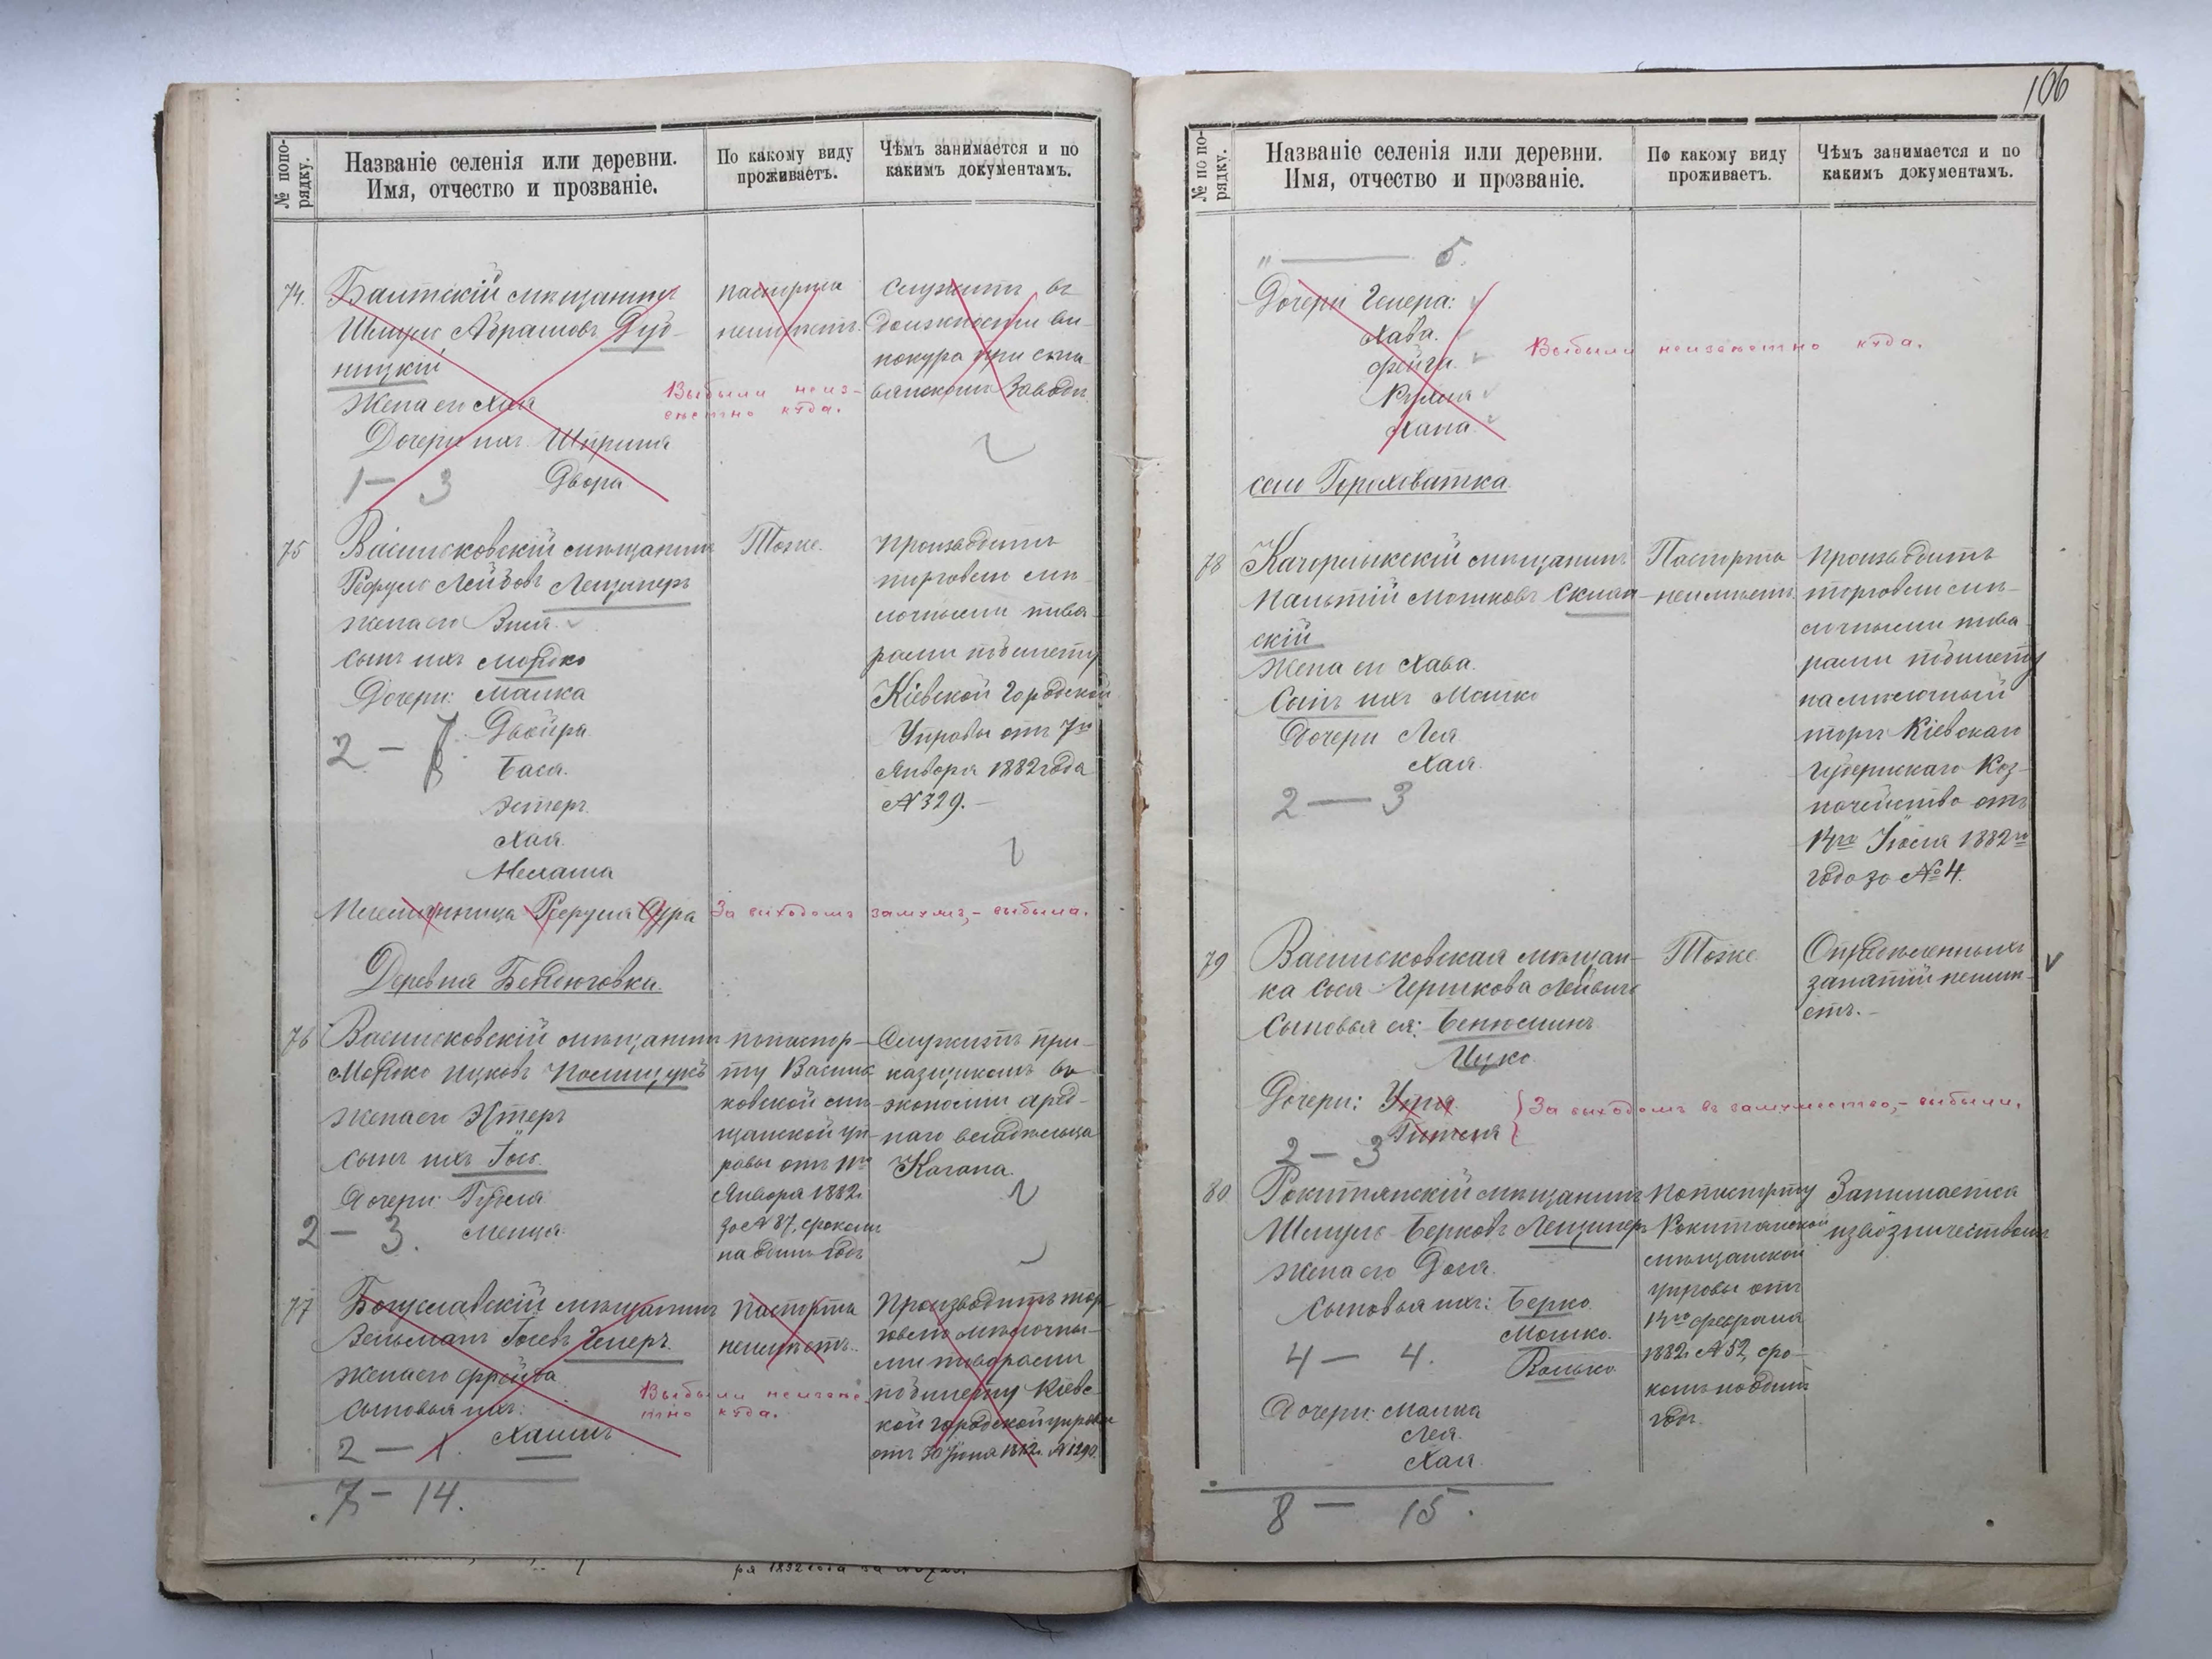 106
№ попо-
рядку.
Названіе селенія или деревни.
Имя, отчество и прозваніе.
По какому виду
проживаетъ.
Чѣмъ занимается и по
какимъ документамъ.
74.
Балтскій мѣщанинъ
Шмуль Абрамовъ Дуб-
ницкій
Жена его Хая
Дочери ихъ Шпринца
Двора
1 — 3
паспорта
неимѣетъ.
Служитъ въ
должности ви-
нокура при
заводѣ.
Выбыли неиз-
вѣстно куда.
75
Васильковскій мѣщанинъ
Рефулъ Лейбовъ Лещинеръ
жена его
сынъ ихъ Мордко
Дочери: Малка
Двойра
Бася.
Эстеръ.
Хая.
2 — 7
Тоже.
Производитъ
торговлю мѣ-
лочными това-
рами по билету
Кіевской Городской
Управы отъ 7го
Января 1882 года
№ 329. —
Племянница Рефула Сура
За выходомъ замужъ, — выбыла.
Деревня Бендюговка.
76
Васильковскій мѣщанинъ
Мордко Ицковъ Полищукъ
жена его Эстеръ
сынъ ихъ Іось.
Дочери: Гудля
2 — 3.
по паспор-
ту Василь-
ковской мѣ-
щанской уп-
равы отъ 11го
Января 1882 г.
за № 87, срокомъ
на одинъ годъ
Служитъ при-
казчикомъ въ
экономіи аренд-
наго владѣльца
Когана.
77
Богуславскій мѣщанинъ
Зельманъ Іосевъ Генеръ.
жена его Фрейда
сыновья ихъ:
Хаимъ
2 — 1.
Паспорта
неимѣетъ.
Производитъ тор-
говлю мѣлочны-
ми товарами
по билету Кіевс-
кой городской управы
отъ 30 Іюня 1882 г. № 1290.
Выбыли неизвѣс-
тно куда.
7 — 14.
№ по по-
рядку.
Названіе селенія или деревни.
Имя, отчество и прозваніе.
По какому виду
проживаетъ.
Чѣмъ занимается и по
какимъ документамъ.
" — 5.
Дочери Генера:
Хава.
Фейга.
Рухля
Хана.
Выбыли неизвѣстно куда.
село Гороховатка.
78
Кагорлыкскій мѣщанинъ
Пальтій Мошковъ Склян-
скій
Жена его Хава.
Сынъ ихъ Мошко
Дочери Лея
Хая.
2 — 3
Паспорта
неимѣетъ.
производитъ
торговлю мѣ-
лочными това-
рами по билету
на мѣлочный
торгъ Кіевскаго
Губернскаго Каз-
начейства отъ
14го Іюля 1882го
года за № 4.
79
Васильковская мѣщан-
ка Сося Гершкова Лейвичъ
Сыновья ея: Беньюминъ
Ицко
Дочери:
Гитля
2 — 3
За выходомъ въ замужество, — выбыли.
Тоже.
Опредѣленныхъ
занятій неимѣ-
етъ. —
80.
Рокитянскій мѣщанинъ
Шмуль Берковъ Лещинеръ
жена его Дося.
Сыновья ихъ: Берко.
Мошко.
Волько
4 — 4.
Дочери: Малка
Лея.
Хая
По паспорту
Рокитянской
мѣщанской
управы отъ
14го февраля
1882 г. № 52, сро-
комъ на одинъ
годъ.
Занимается
извозничествомъ
8 — 15.